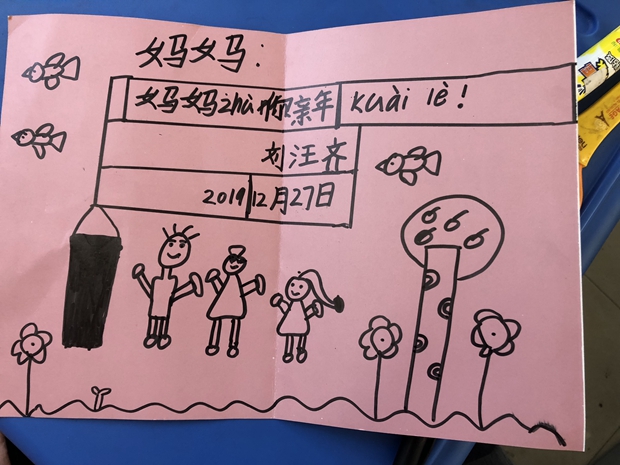 妈妈：
妈妈妈zhù你亲年kuài lè！
刘汪齐
2019 12月27日